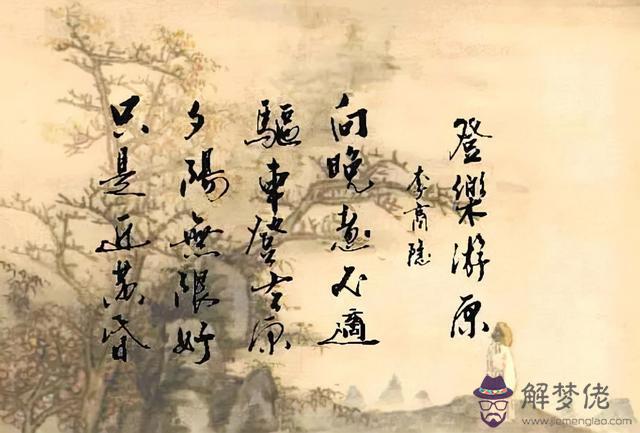 登樂游原
李商隐
向晚意不適
驅車登古原
夕陽無限好
只是近黄昏
解梦佬
www.jiemenglao.com